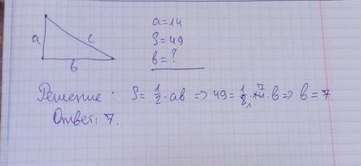 a
c
b
a = 14
S = 49
b = ?
Решение: S = 1/2 · ab => 49 = 1/2 · 14 7 · b => b = 7
Ответ: 7.